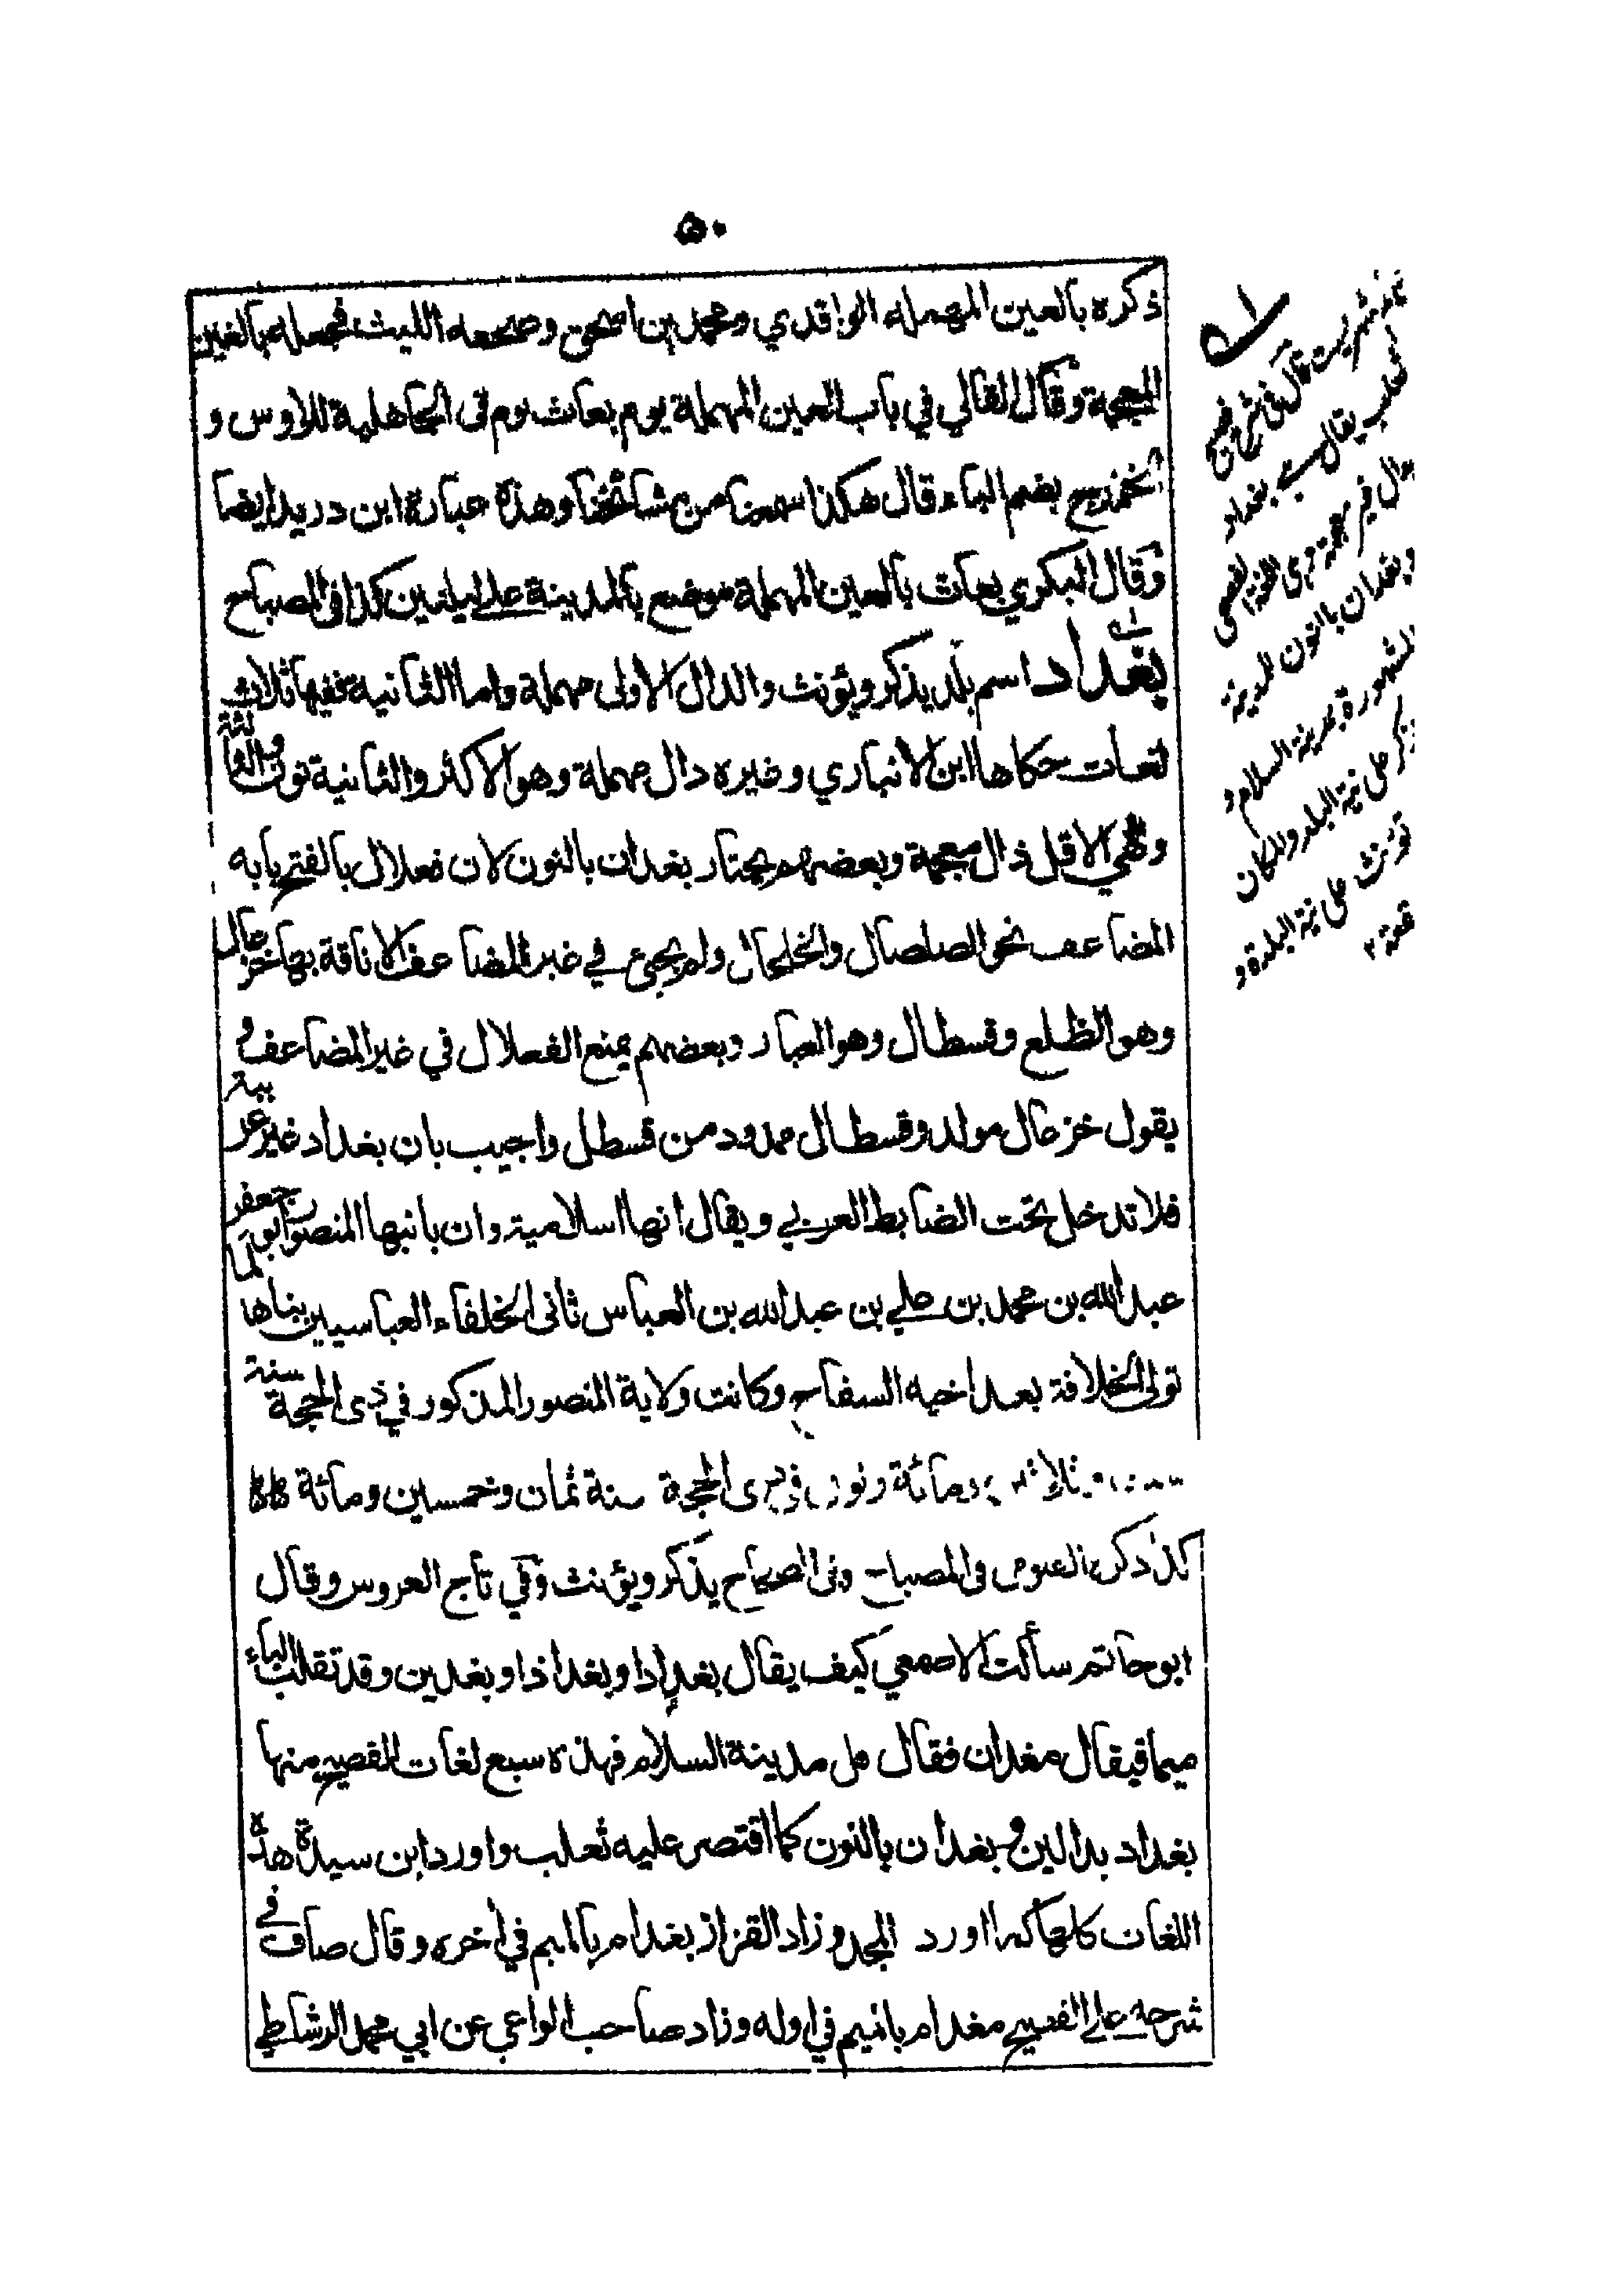 ٥٠
ذكره بالعين المهملة الواقدي ومحمد بن اسحق وصحفه الليث فجعله بالغين
المعجمة وقال القالي في باب العين المهملة يوم بعاث يوم في الجاهلية للاوس و
الخزرج بضم الباء قال هكذا سمعنا من مشائخنا وهذة عبارة ابن دريد ايضا
وقال البكري بعاث بالعين المهملة موضع بالمدينة على ليلتين كذا في المصباح
بغداد اسم بلد يذكر ويؤنث والدال الاولى مهملة واما الثانية ففيها ثلاث
لغات حكاها ابن الانباري وغيره دال مهملة وهو الاكثر والثانية نون والثالثة
وهي الاقل ذال معجمة وبعضهم يختار بغدان بالنون لان فعلال بالفتح بابه
المضاعف نحو الصلصال والخلخال ولم يجئ في غير المضاعف الا ناقة بها خزعال
وهو الظلع وقسطال وهو الغبار وبعضهم يمنع الفعلال في غير المضاعف و
يقول خزعال مولد وقسطال ممدود من قسطل واجيب بان بغداد غير عربية
فلا تدخل تحت الضابط العربي ويقال انها اسلامية وان بانيها المنصور ابو جعفر
عبد الله بن محمد بن علي بن عبد الله بن العباس ثاني الخلفاء العباسيين بناها لما
تولى الخلافة بعد اخيه السفاح وكانت ولاية المنصور المذكور في ذى الحجة سنة
وثلاثين ومائة وتوفي في ذى الحجة سنة ثمان وخمسين ومائة
كذا ذكره الفيومي في المصباح وفي الصحاح يذكر ويؤنث وفي تاج العروس وقال
ابو حاتم سألت الاصمعي كيف يقال بغداد او بغداذ او بغدين وقد تقلب الباء
ميما فيقال مغدان فقال قل مدينة السلام فهذه سبع لغات الفصيح منها
بغداد بدالين وبغدان بالنون كما اقتصر عليه ثعلب واورد ابن سيدة هذة
اللغات كلها كما اورد المجد وزاد القزاز بغدام بالميم في أخره وقال صاف في
شرحه على الفصيح مغدام بالميم في اوله وزاد صاحب الواعي عن ابي محمد الرشاطي
ثعلب يقال هي بغداد
وبغدان بالنون للمدينة
المشهورة بمدينة السلام و
يذكر على نية البلد والمكان
تؤنث على نية البلدة و